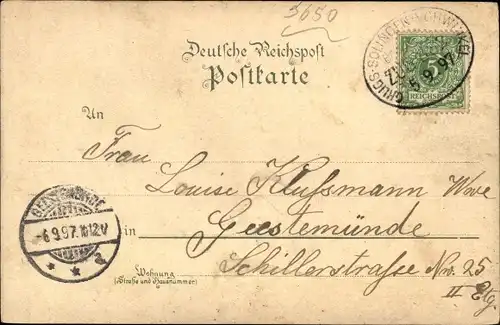 3650
Deutsche Reichspost
Postkarte
5
REICHSPOST
5.9.97
An
Frau
Louise Klussmann Wwe
in Geestemünde
Schillerstrasse Nro. 25
II Etg.
GEESTEMÜNDE
-6.9.97.10-12V
* * a
Wohnung
(Straße und Hausnummer)